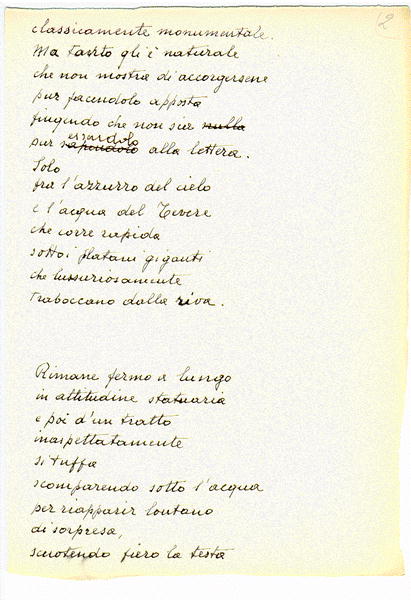 2
classicamente monumentale.
Ma tanto gli è naturale
che non mostra di accorgersene
pur facendolo apposta
fingendo che non sia nulla
essendolo
pur sapendolo alla lettera.
Solo
fra l'azzurro del cielo
e l'acqua del Tevere
che corre rapida
sotto i platani giganti
che lussuriosamente
traboccano dalla riva.
Rimane fermo a lungo
in attitudine statuaria
e poi d'un tratto
inaspettatamente
si tuffa
scomparendo sotto l'acqua
per riapparir lontano
di sorpresa,
scuotendo fiero la testa